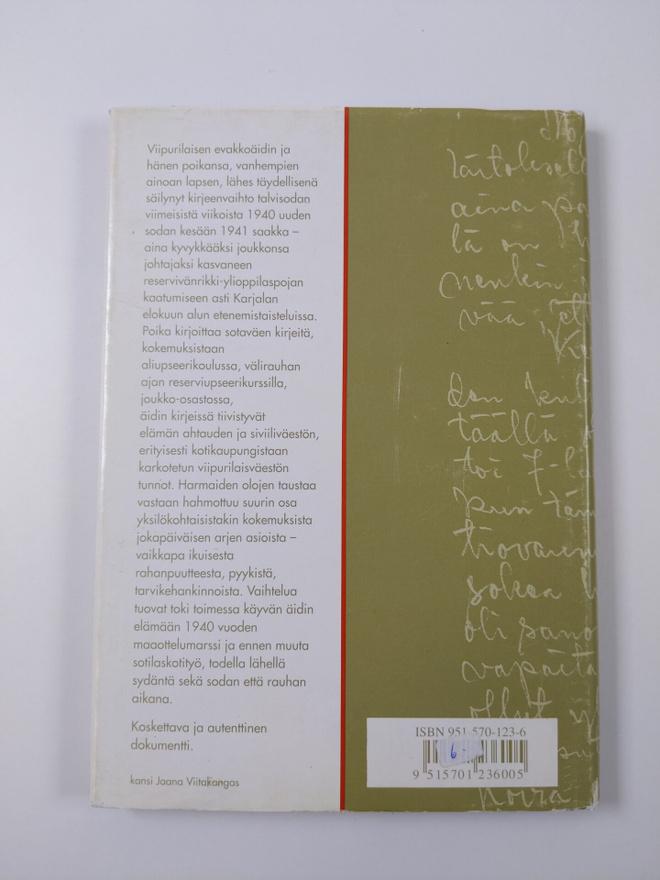 Viipurilaisen evakkoäidin ja
hänen poikansa, vanhempien
ainoan lapsen, lähes täydellisenä
säilynyt kirjeenvaihto talvisodan
viimeisistä viikoista 1940 uuden
sodan kesään 1941 saakka –
aina kyvykkääksi joukkonsa
johtajaksi kasvaneen
reservivänrikki-ylioppilaspojan
kaatumiseen asti Karjalan
elokuun alun etenemistaisteluissa.
Poika kirjoittaa sotaväen kirjeitä,
kokemuksistaan
aliupseerikoulussa, välirauhan
ajan reserviupseerikurssilla,
joukko-osastossa,
äidin kirjeissä tiivistyvät
elämän ahtauden ja siviiliväestön,
erityisesti kotikaupungistaan
karkotetun viipurilaisväestön
tunnot. Harmaiden olojen taustaa
vastaan hahmottuu suurin osa
yksilökohtaisistakin kokemuksista
jokapäiväisen arjen asioista –
vaikkapa ikuisesta
rahanpuutteesta, pyykistä,
tarvikehankinnoista. Vaihtelua
tuovat toki toimessa käyvän äidin
elämään 1940 vuoden
maaottelumarssi ja ennen muuta
sotilaskotityö, todella lähellä
sydäntä sekä sodan että rauhan
aikana.
Koskettava ja autenttinen
dokumentti.
kansi Jaana Viitakangas
aina
lä on
nenkin
vää
täällä
toi 7-
oli sano
ISBN 951-570-123-6
6-
9 515701 236005